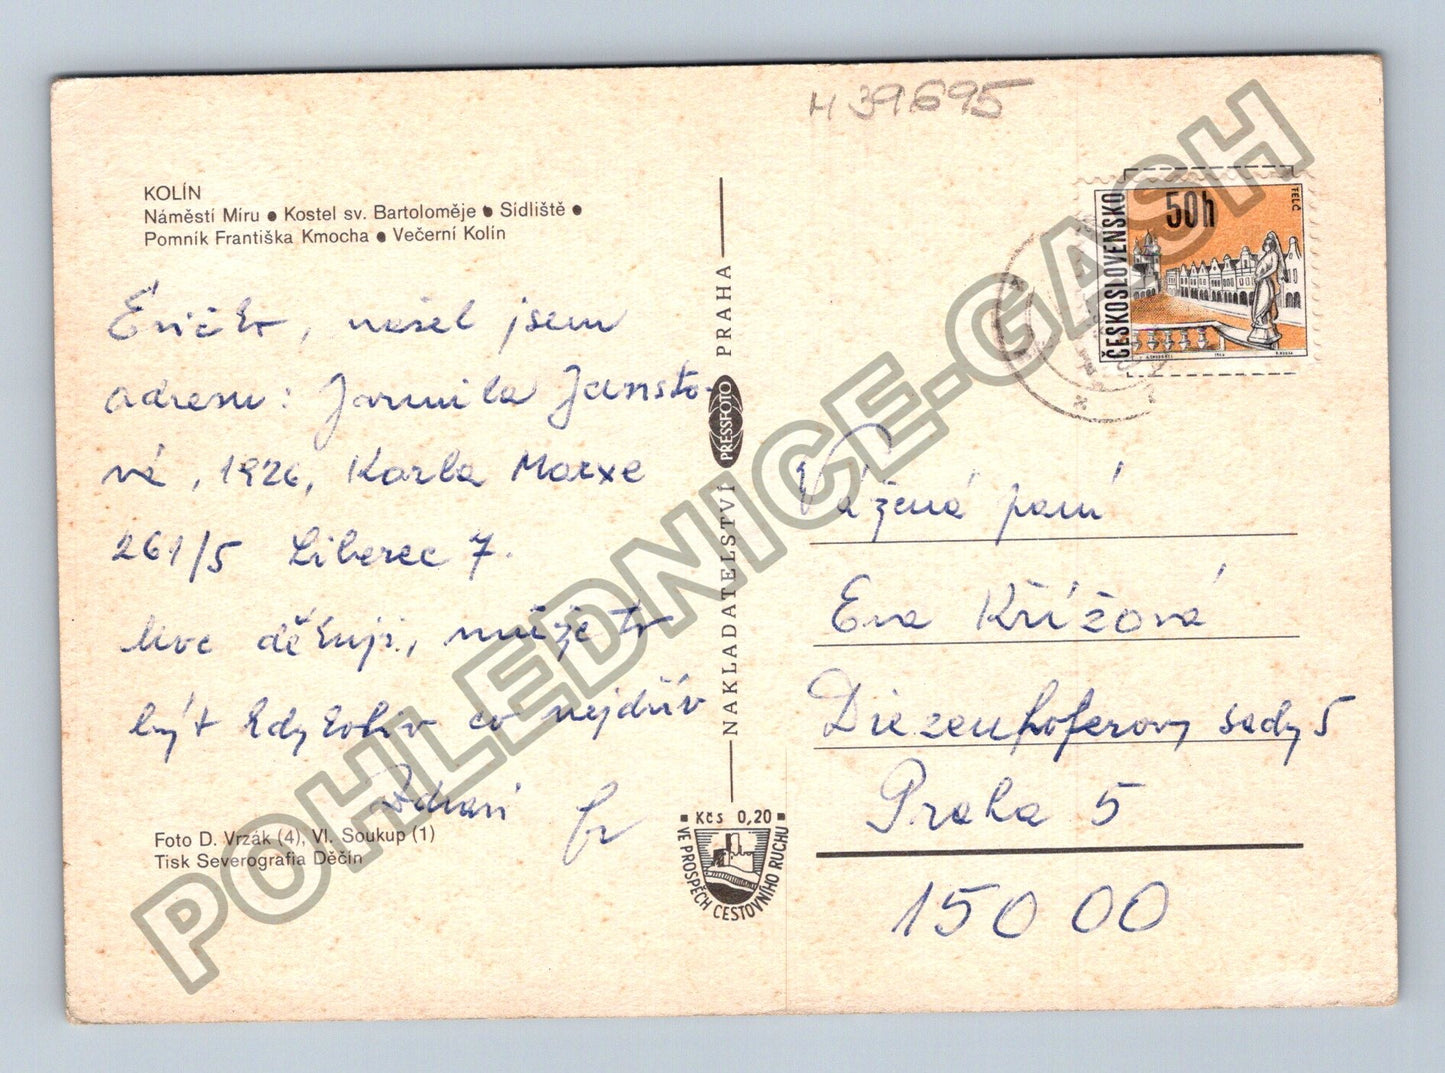 H 39695
KOLÍN
Náměstí Míru ● Kostel sv. Bartoloměje ● Sídliště ●
Pomník Františka Kmocha ● Večerní Kolín
Evičko, našel jsem
adresu: Jarmila Jansto-
vá, 1926, Karla Marxe
261/5 Liberec 7.
děkuji, může to
být kdykoliv co nejdřív
Zdraví
Foto D. Vrzák (4), Vl. Soukup (1)
Tisk Severografia Děčín
NAKLADATELSTVÍ PRESSFOTO PRAHA
Kčs 0,20
VE PROSPĚCH CESTOVNÍHO RUCHU
ČESKOSLOVENSKO
50h
TELČ
Vážená paní
Eva Křížová
Diezenhoferovy sady 5
Praha 5
150 00
POHLEDNICE-GASH